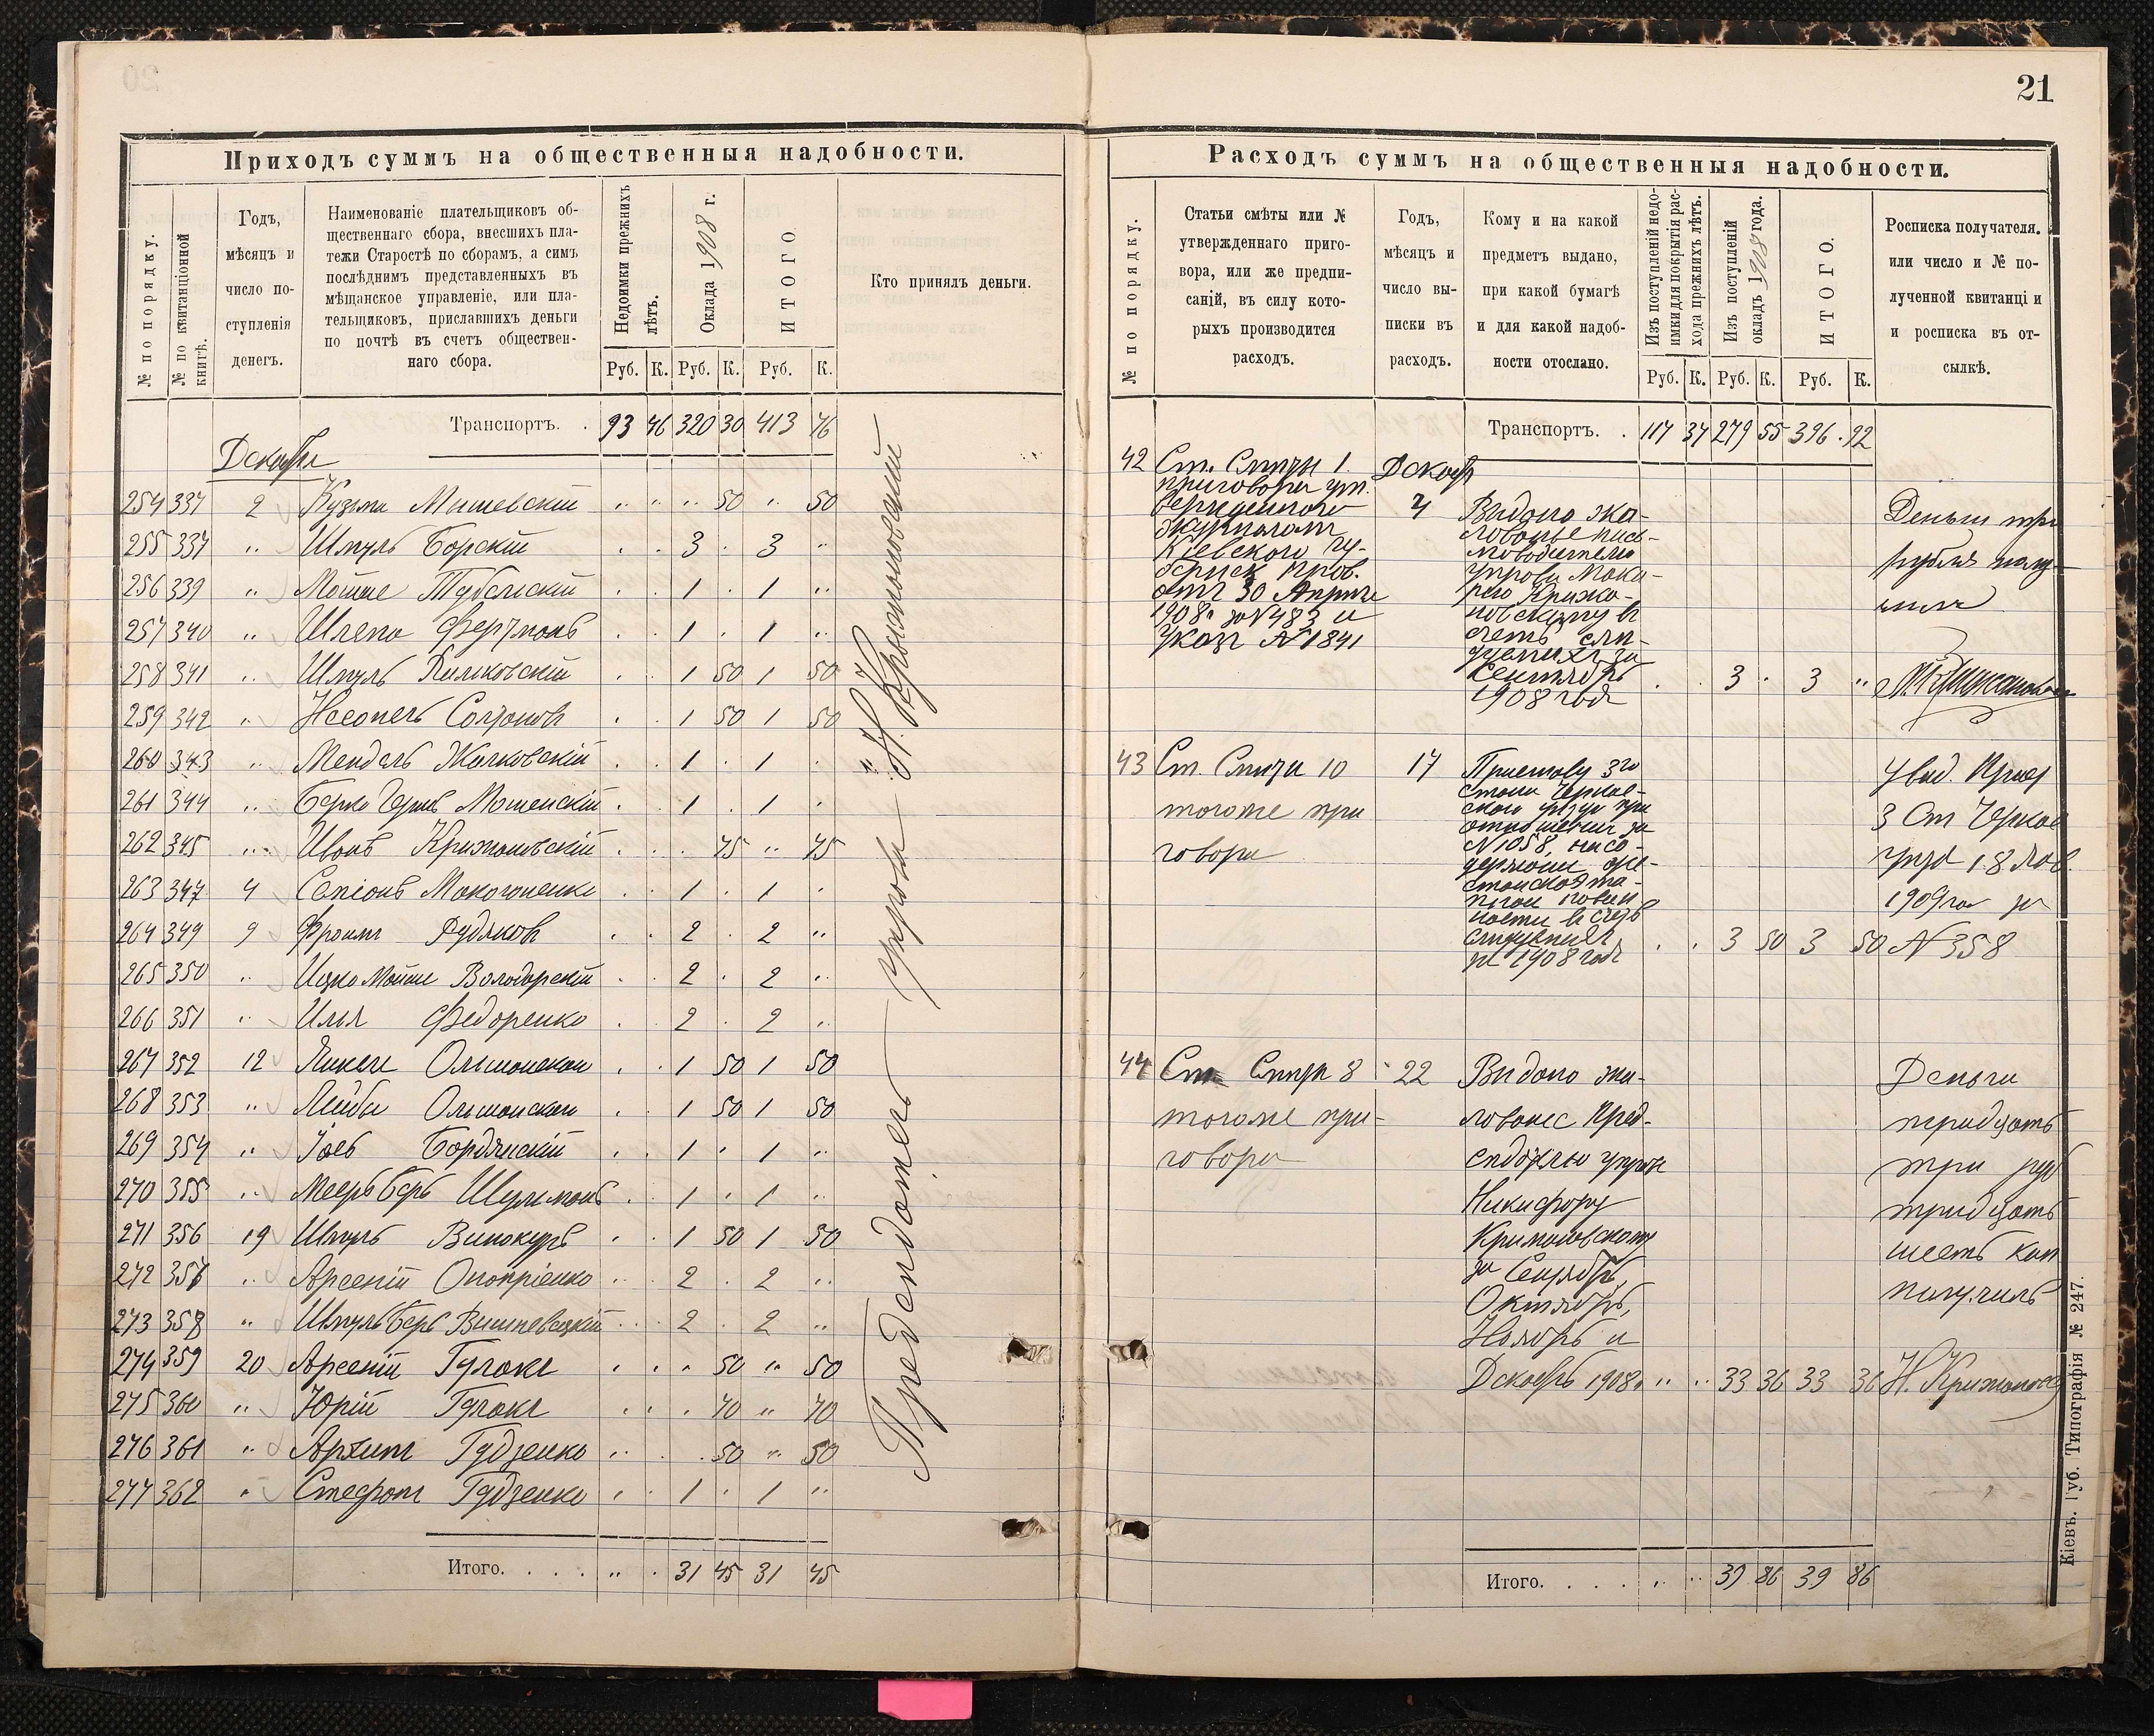 21
Приходъ суммъ на общественныя надобности.
№ по порядку.
№ по квитанціонной книгѣ.
Годъ,
мѣсяцъ и
число по-
ступленія
денегъ.
Наименованіе плательщиковъ об-
щественнаго сбора, внесшихъ пла-
тежи Старостѣ по сборамъ, а симъ
послѣднимъ представленныхъ въ
мѣщанское управленіе, или пла-
тельщиковъ, приславшихъ деньги
по почтѣ въ счетъ обществен-
наго сбора.
Недоимки прежнихъ лѣтъ.
Оклада 1908 г.
ИТОГО.
Кто принялъ деньги.
Руб. К. Руб. К. Руб. К.
Транспортъ. . 93 46 320 30 413 76
Декабрь
254 337 2 Кузьма Мишевскій 50 50
255 337 " Шмуль Борскій 3 3
256 339 " Мойше 1 1
257 340 " 1 1
258 341 " Шмуль 1 50 1 50
259 342 " 1 50 1 50
260 343 " Мендель 1 1
261 344 " Берко Мошенскій 1 1
262 345 " Иванъ Крижановскій 75 75
263 347 4 Макогоненко 1 1
264 349 9 Фроимъ Рудяковъ 2 2
265 350 " Ицко Мойше Володарскій 2 2
266 351 " Илья Федоренко 2 2
267 352 12 Янкель Ольшанскай 1 50 1 50
268 353 " Лейба Ольшанскай 1 50 1 50
269 354 " Бордянскій 1 1
270 355 " Мееръ Беръ Шульманъ 1 1
271 356 19 Шмуль Винокуръ 1 50 1 50
272 357 " Арсеній Оноприенко 2 2
273 358 " Шмуль Беръ Вишневецкій 2 2
274 359 20 Арсеній Гулакъ 50 50
275 360 " Юрій Гулакъ 70 70
276 361 " Архипъ Гудзенко 50 50
277 362 " Стефанъ Гудзенко 1 1
Итого. . . . 31 45 31 45
Предсѣдатель управы Н. Крижановскій
Расходъ суммъ на общественныя надобности.
№ по порядку.
Статьи смѣты или №
утвержденнаго приго-
вора, или же предпи-
саній, въ силу кото-
рыхъ производится
расходъ.
Годъ,
мѣсяцъ и
число вы-
писки въ
расходъ.
Кому и на какой
предметъ выдано,
при какой бумагѣ
и для какой надоб-
ности отослано.
Изъ поступленій недо-
имки для покрытія рас-
хода прежнихъ лѣтъ.
Изъ поступленій
окладъ 1908 года.
ИТОГО.
Росписка получателя.
или число и № по-
лученной квитанці и
и росписка въ от-
сылкѣ.
Руб. К. Руб. К. Руб. К.
Транспортъ. . 117 37 279 55 396 92
42 Ст. Смѣты 1 Декабр
приговора ут.
вержденного
журналомъ
Кіевского гу-
бернск. Прав.
отъ 30 Апрѣля
1908 г за № 483 и
Указъ № 1841
4 Выдано жа-
лованье пись-
моводителю
управы Мака-
рію Крижа-
новскому въ
счетъ слѣ-
дуемыхъ за
Сентябрь
1908 годъ
3 3
Деньги три
рубля полу-
чилъ
43 Ст. Смѣты 10
тогоже при
говора
17 Приставу 3го
стана Черкас-
скаго уѣзда при
отношеніи за
№ 1058, на со-
держаніе аре-
стански
въ счетъ
за 1908 годъ
3 50 3 50
Увѣд. Прист
3 Ст Черкас
уѣзд 18
1909 год за
№ 358
44 Ст. Смѣты 8
тогоже при-
говора
22 Выдано жа-
лованье Пред-
сѣдателю управы
Никифору
Крижановскому
за Сентябрь,
Октябрь,
Ноябрь и
Декабрь 1908 г 33 36 33 36
Деньги
тридцать
три руб
тридцать
шесть коп
получилъ
Н. Крижановск
Итого. . . . 39 86 39 86
Кіевъ. Губ. Типографія № 247.